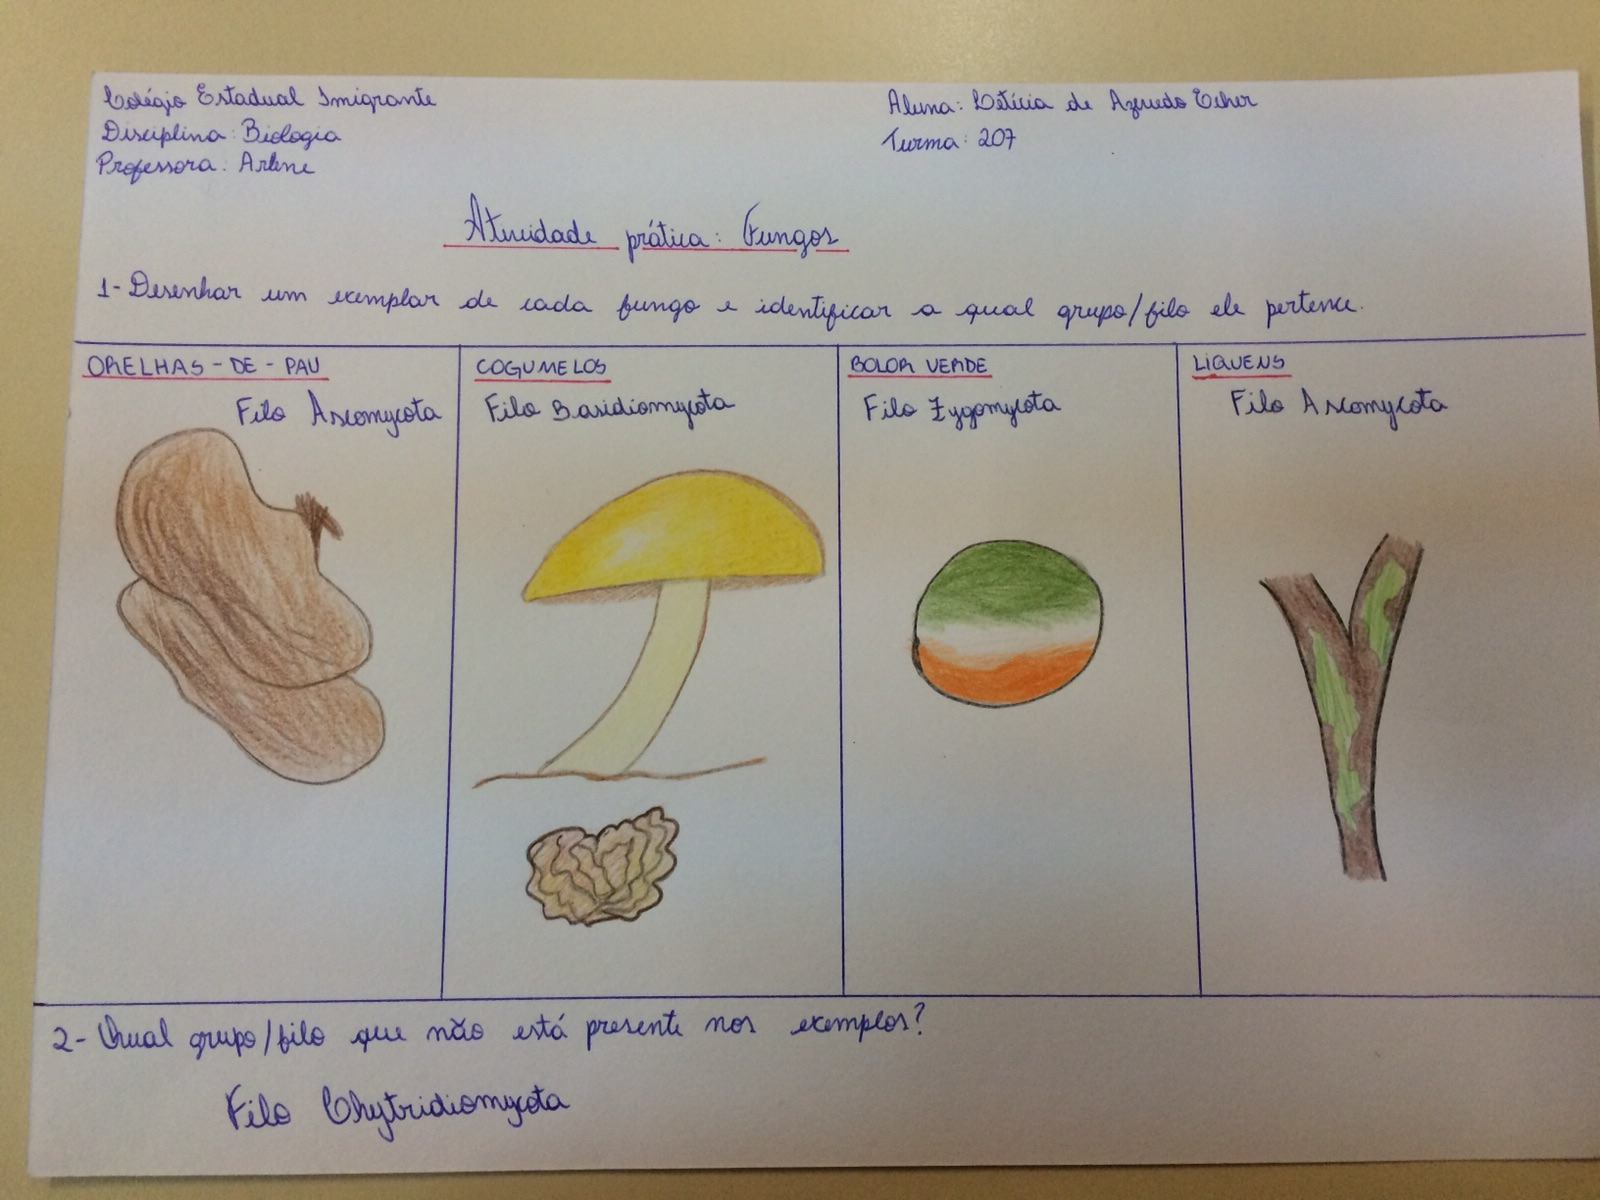 Colégio Estadual Imigrante
Disciplina: Biologia
Professora: Arlene
Aluna: Letícia de Azevedo Echer
Turma: 207
Atividade prática: Fungos
1- Desenhar um exemplar de cada fungo e identificar a qual grupo/filo ele pertence.
ORELHAS-DE-PAU
Filo Ascomycota
COGUMELOS
Filo Basidiomycota
BOLOR VERDE
Filo Zygomycota
LIQUENS
Filo Ascomycota
2- Qual grupo/filo que não está presente nos exemplos?
Filo Chytridiomycota